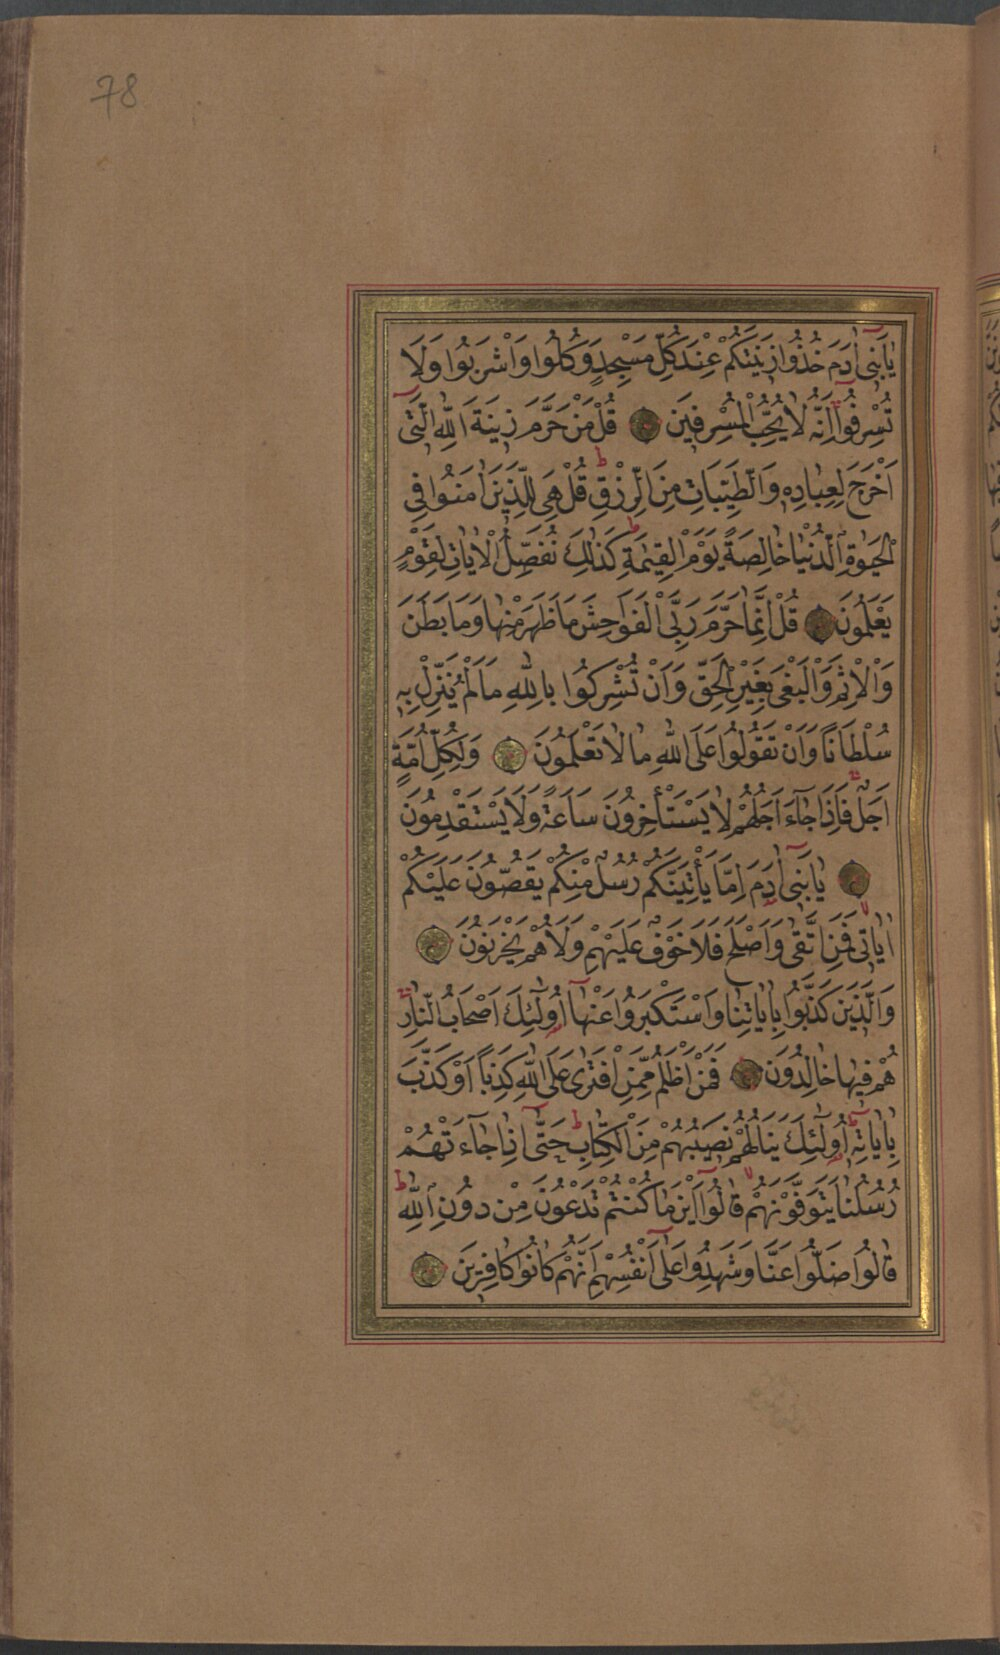 78
يَا بَنِى اٰدَمَ خُذُوا زِينَتَكُمْ عِنْدَ كُلِّ مَسْجِدٍ وَكُلُوا وَاشْرَبُوا وَلَا
تُسْرِفُوا اِنَّهُ لَا يُحِبُّ الْمُسْرِفِينَ قُلْ مَنْ حَرَّمَ زِينَةَ اللّٰهِ الَّتِى
اَخْرَجَ لِعِبَادِهِ وَالطَّيِّبَاتِ مِنَ الرِّزْقِ قُلْ هِىَ لِلَّذِينَ اٰمَنُوا فِى
الْحَيٰوةِ الدُّنْيَا خَالِصَةً يَوْمَ الْقِيٰمَةِ كَذٰلِكَ نُفَصِّلُ الْاٰيَاتِ لِقَوْمٍ
يَعْلَمُونَ قُلْ اِنَّمَا حَرَّمَ رَبِّىَ الْفَوَاحِشَ مَا ظَهَرَ مِنْهَا وَمَا بَطَنَ
وَالْاِثْمَ وَالْبَغْىَ بِغَيْرِ الْحَقِّ وَاَنْ تُشْرِكُوا بِاللّٰهِ مَا لَمْ يُنَزِّلْ بِهِ
سُلْطَانًا وَاَنْ تَقُولُوا عَلَى اللّٰهِ مَا لَا تَعْلَمُونَ وَلِكُلِّ اُمَّةٍ
اَجَلٌ فَاِذَا جَاءَ اَجَلُهُمْ لَا يَسْتَأْخِرُونَ سَاعَةً وَلَا يَسْتَقْدِمُونَ
يَا بَنِى اٰدَمَ اِمَّا يَأْتِيَنَّكُمْ رُسُلٌ مِنْكُمْ يَقُصُّونَ عَلَيْكُمْ
اٰيَاتِى فَمَنِ اتَّقٰى وَاَصْلَحَ فَلَا خَوْفٌ عَلَيْهِمْ وَلَا هُمْ يَحْزَنُونَ
وَالَّذِينَ كَذَّبُوا بِاٰيَاتِنَا وَاسْتَكْبَرُوا عَنْهَا اُولٰئِكَ اَصْحَابُ النَّارِ
هُمْ فِيهَا خَالِدُونَ فَمَنْ اَظْلَمُ مِمَّنِ افْتَرٰى عَلَى اللّٰهِ كَذِبًا اَوْ كَذَّبَ
بِاٰيَاتِهِ اُولٰئِكَ يَنَالُهُمْ نَصِيبُهُمْ مِنَ الْكِتَابِ حَتّٰى اِذَا جَاءَتْهُمْ
رُسُلُنَا يَتَوَفَّوْنَهُمْ قَالُوا اَيْنَ مَا كُنْتُمْ تَدْعُونَ مِنْ دُونِ اللّٰهِ
قَالُوا ضَلُّوا عَنَّا وَشَهِدُوا عَلٰى اَنْفُسِهِمْ اَنَّهُمْ كَانُوا كَافِرِينَ